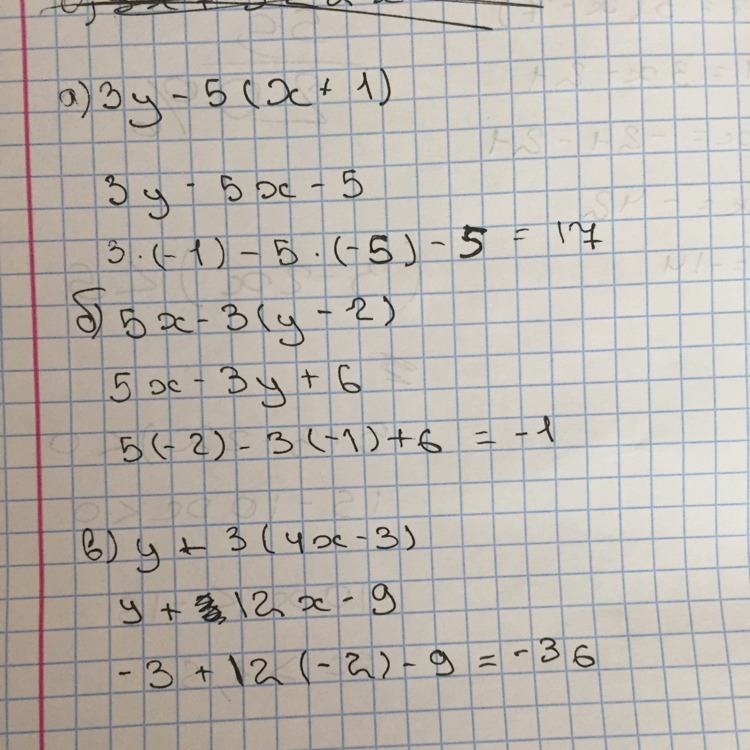 а) 3y - 5(x + 1)
3y - 5x - 5
3·(-1) - 5·(-5) - 5 = 17
б) 5x - 3(y - 2)
5x - 3y + 6
5(-2) - 3(-1) + 6 = -1
в) y + 3(4x - 3)
y + 12x - 9
-3 + 12(-2) - 9 = -36